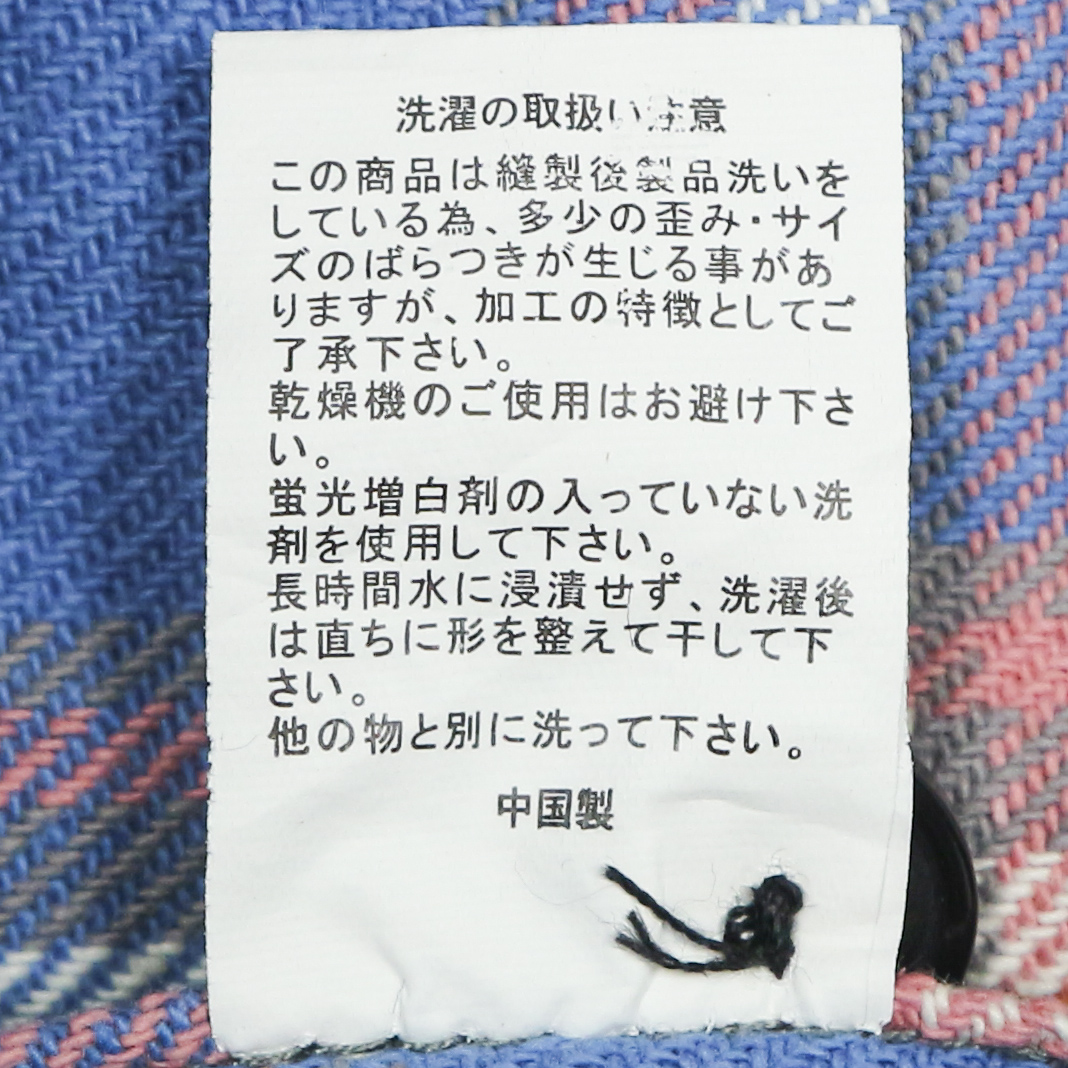 洗濯の取扱い注意
この商品は縫製後製品洗いを
している為、多少の歪み・サイ
ズのばらつきが生じる事があ
りますが、加工の特徴としてご
了承下さい。
乾燥機のご使用はお避け下さ
い。
蛍光増白剤の入っていない洗
剤を使用して下さい。
長時間水に浸漬せず、洗濯後
は直ちに形を整えて干して下
さい。
他の物と別に洗って下さい。
中国製